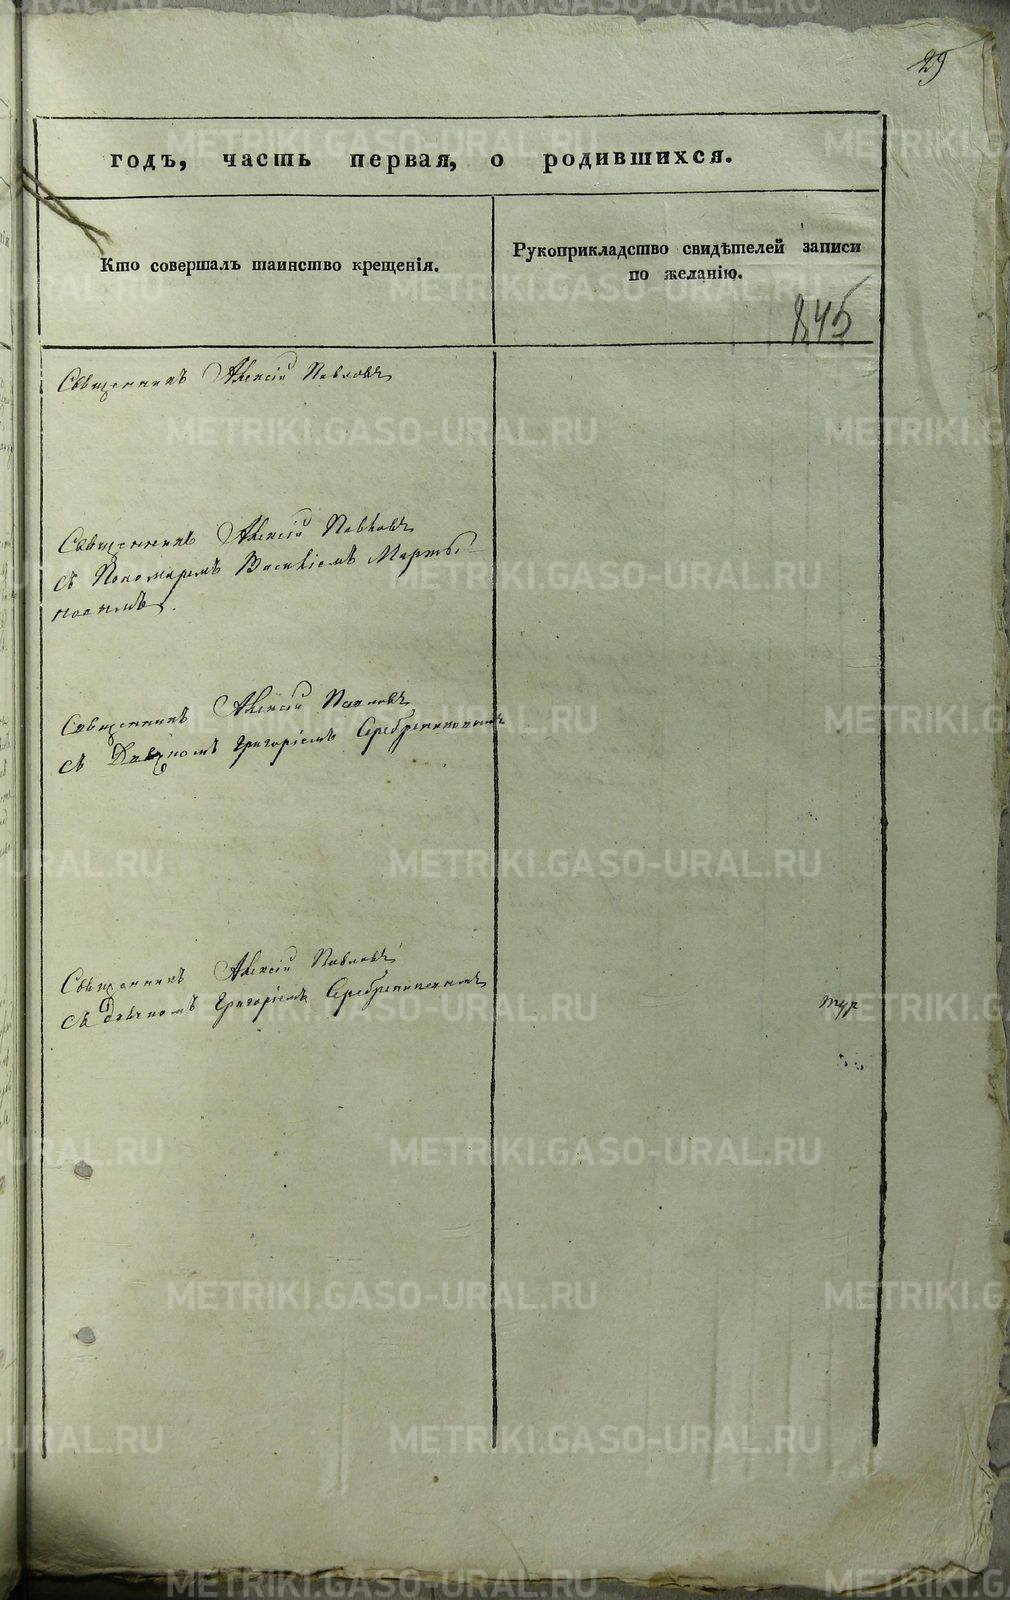 29
годъ, часть первая, о родившихся.
Кто совершалъ таинство крещенія.
Рукоприкладство свидѣтелей записи
по желанію.
845
Священникъ Алексій Павловъ
Священникъ Алексій Павловъ
съ Пономаремъ Василіемъ Марты-
новымъ.
Священникъ Алексій Павловъ
съ Дьячкомъ Григоріемъ Серебренниковымъ
Священникъ Алексій Павловъ
съ Дьячкомъ Григоріемъ Серебренниковымъ
METRIKI.GASO-URAL.RU